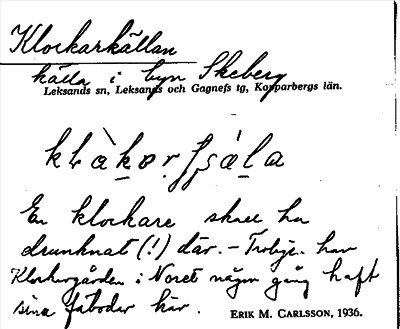 Klockarkällan
källa i byn Skeberg
Leksands sn, Leksands och Gagnefs tg, Kopparbergs län.
En klockare skall ha
drunknat (!) där. – Troligen har
Klockargården i Noret någon gång haft
sina fäbodar här.
ERIK M. CARLSSON, 1936.